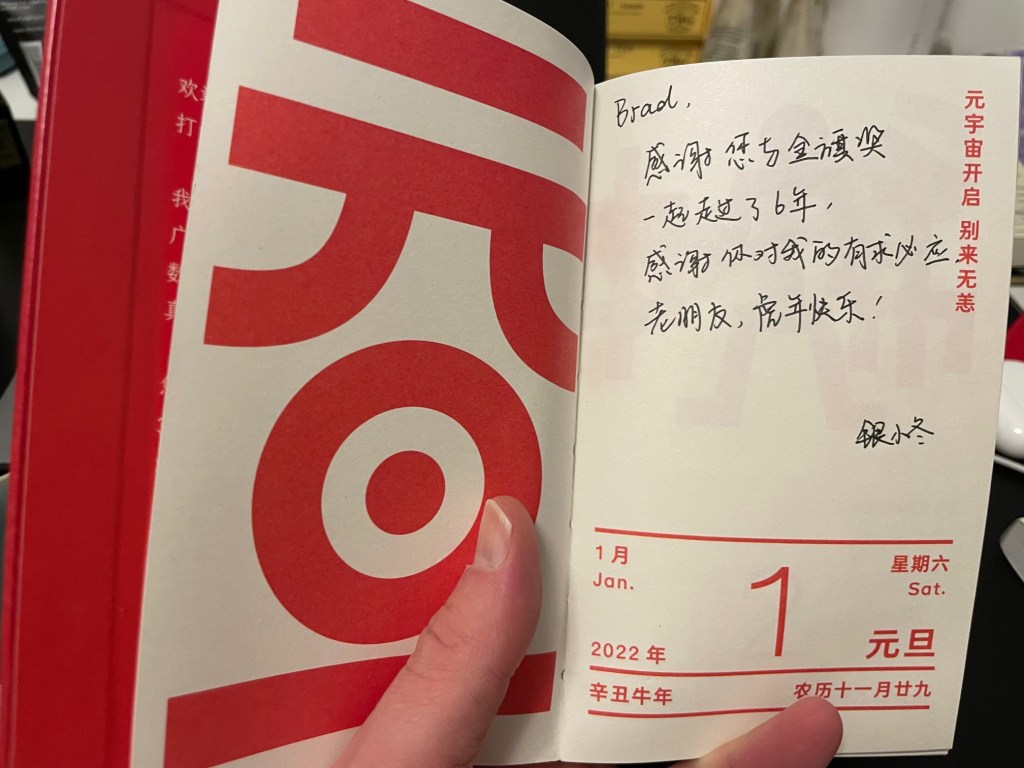 欢
打
我
广
数
真
元旦
Brad,
感谢您与金旗奖
一起走过了6年,
感谢你对我的有求必应,
老朋友,虎年快乐!
银小冬
元宇宙开启 别来无恙
1月
Jan.
1
星期六
Sat.
2022 年
元旦
辛丑牛年
农历十一月廿九